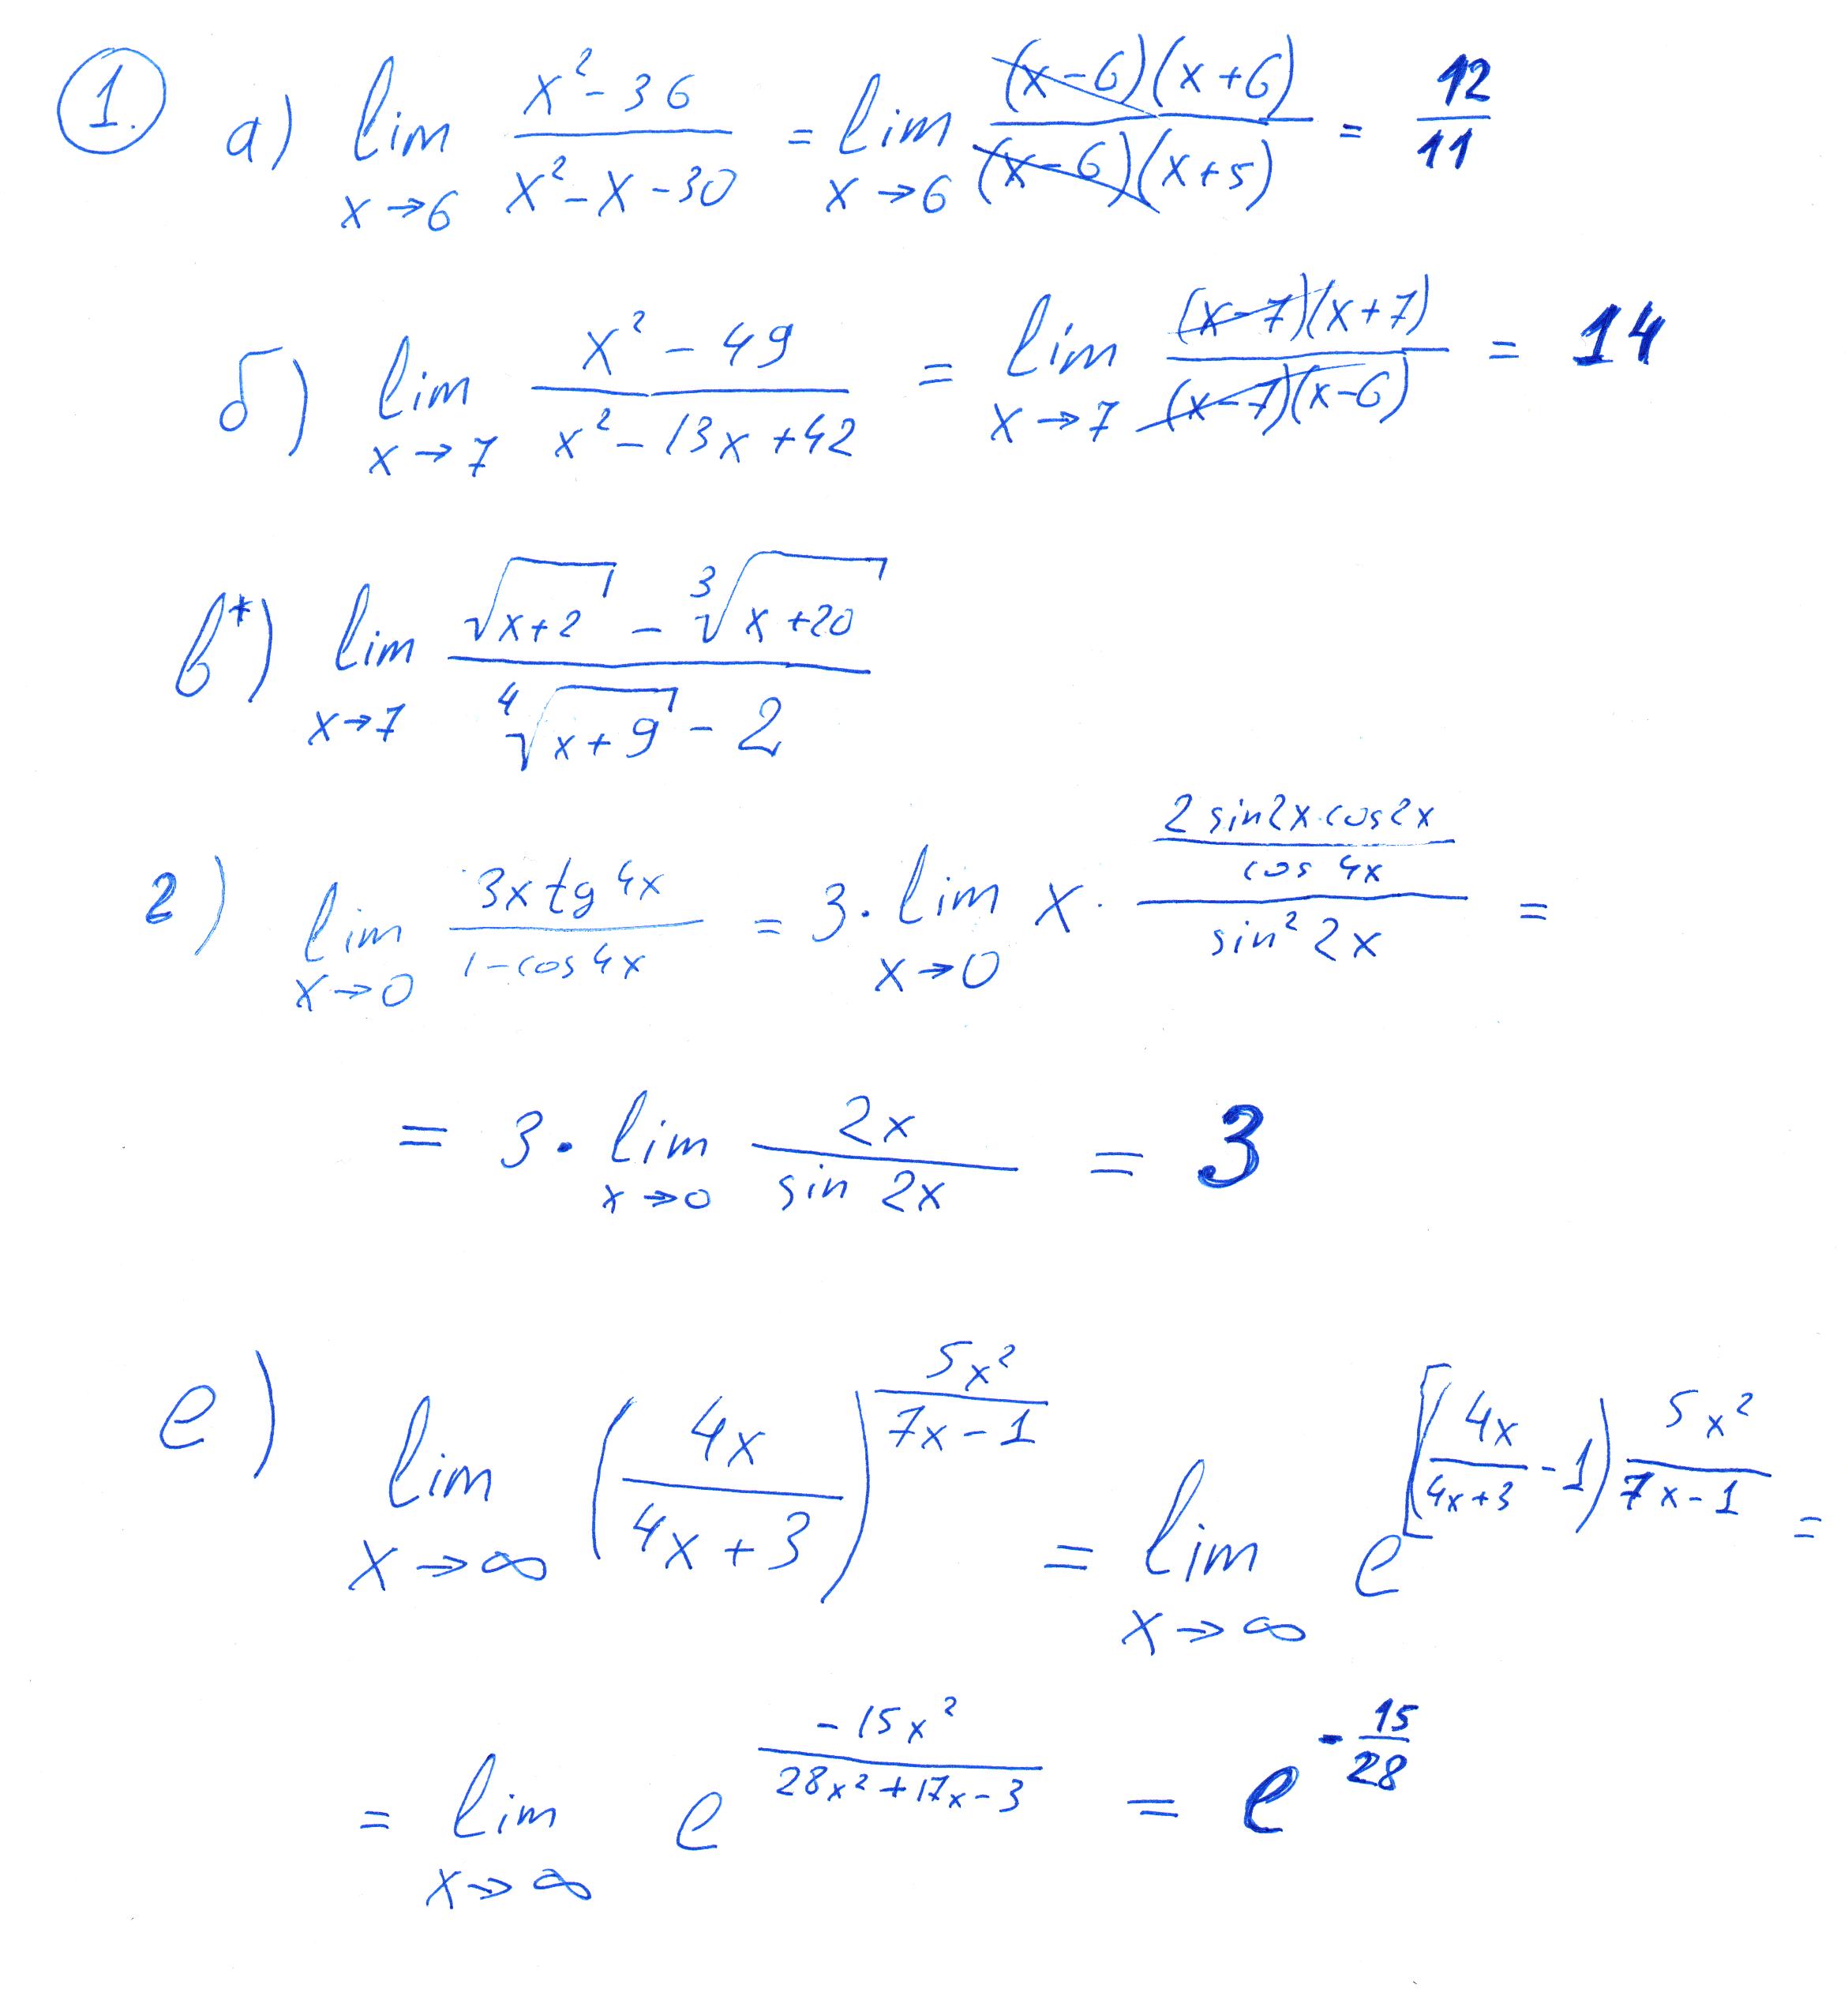 1. а) lim_{x→6} (x² - 36)/(x² - x - 30) = lim_{x→6} ((x-6)(x+6))/((x-6)(x+5)) = 12/11
б) lim_{x→7} (x² - 49)/(x² - 13x + 42) = lim_{x→7} ((x-7)(x+7))/((x-7)(x-6)) = 14
в*) lim_{x→7} (√(x+2) - ∛(x+20))/(∜(x+9) - 2)
г) lim_{x→0} (3x tg 4x)/(1 - cos 4x) = 3 · lim_{x→0} x · ((2 sin 2x · cos 2x)/(cos 4x))/(sin² 2x) =
= 3 · lim_{x→0} (2x)/(sin 2x) = 3
е) lim_{x→∞} ((4x)/(4x+3))^{(5x²)/(7x-1)} = lim_{x→∞} e^{[((4x)/(4x+3) - 1) (5x²)/(7x-1)} =
= lim_{x→∞} e^{(-15x²)/(28x² + 17x - 3)} = e^{-15/28}